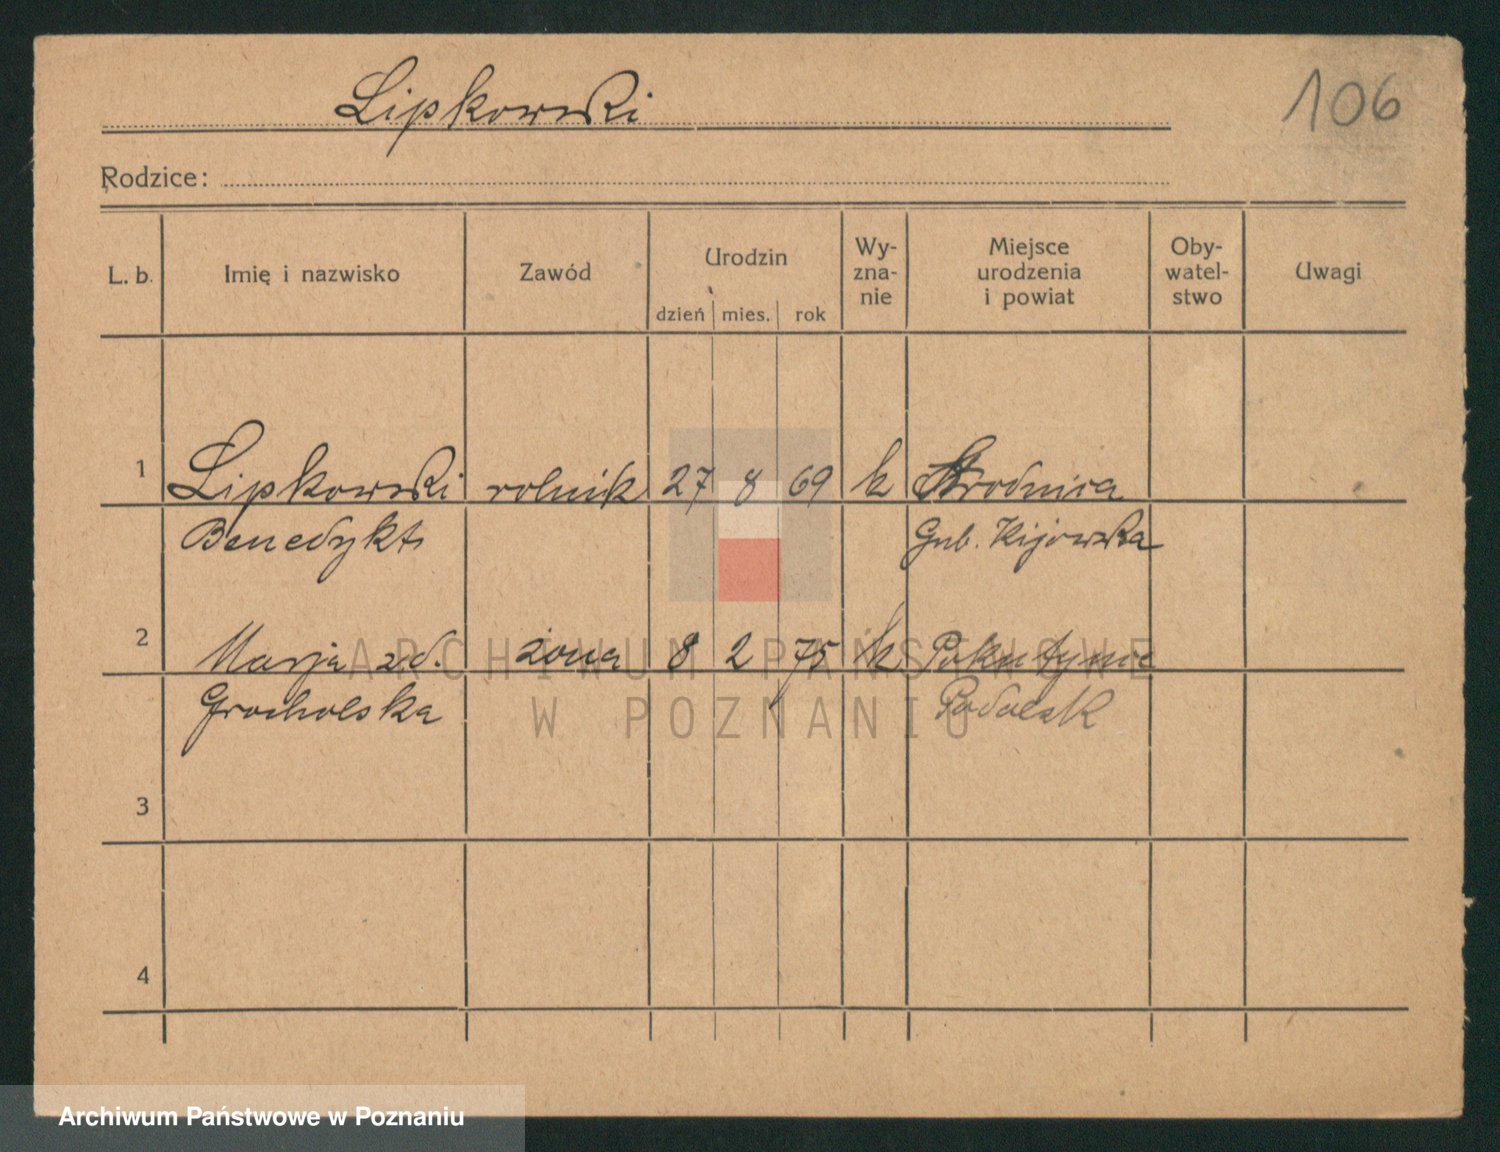 Lipkowski
106
Rodzice:
L. b. Imię i nazwisko Zawód Urodzin dzień mies. rok Wy-zna-nie Miejsce urodzenia i powiat Oby-watel-stwo Uwagi
1 Lipkowski rolnik 27 8 69 k
Benedykt Gub. Kijowska
2 Marja zd. żona 8 2 75 k
Grocholska
3
4
ARCHIWUM PAŃSTWOWE
W POZNANIU
Archiwum Państwowe w Poznaniu